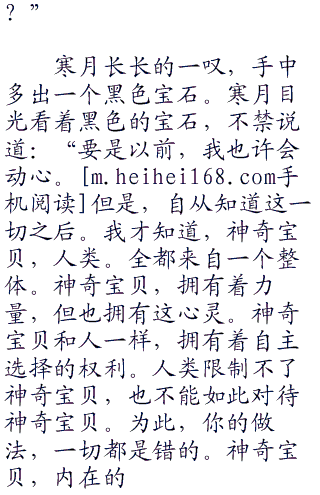 ？”
寒月长长的一叹，手中
多出一个黑色宝石。寒月目
光看着黑色的宝石，不禁说
道：“要是以前，我也许会
动心。[m.heihei168.com手
机阅读]但是，自从知道这一
切之后。我才知道，神奇宝
贝，人类。全都来自一个整
体。神奇宝贝，拥有着力
量，但也拥有这心灵。神奇
宝贝和人一样，拥有着自主
选择的权利。人类限制不了
神奇宝贝，也不能如此对待
神奇宝贝。为此，你的做
法，一切都是错的。神奇宝
贝，内在的